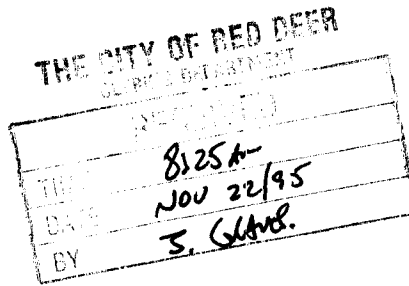 THE CITY OF RED DEER
CLERK'S DEPARTMENT
RECEIVED
TIME 8:25 AM
DATE NOV 22/95
BY J. Graves.